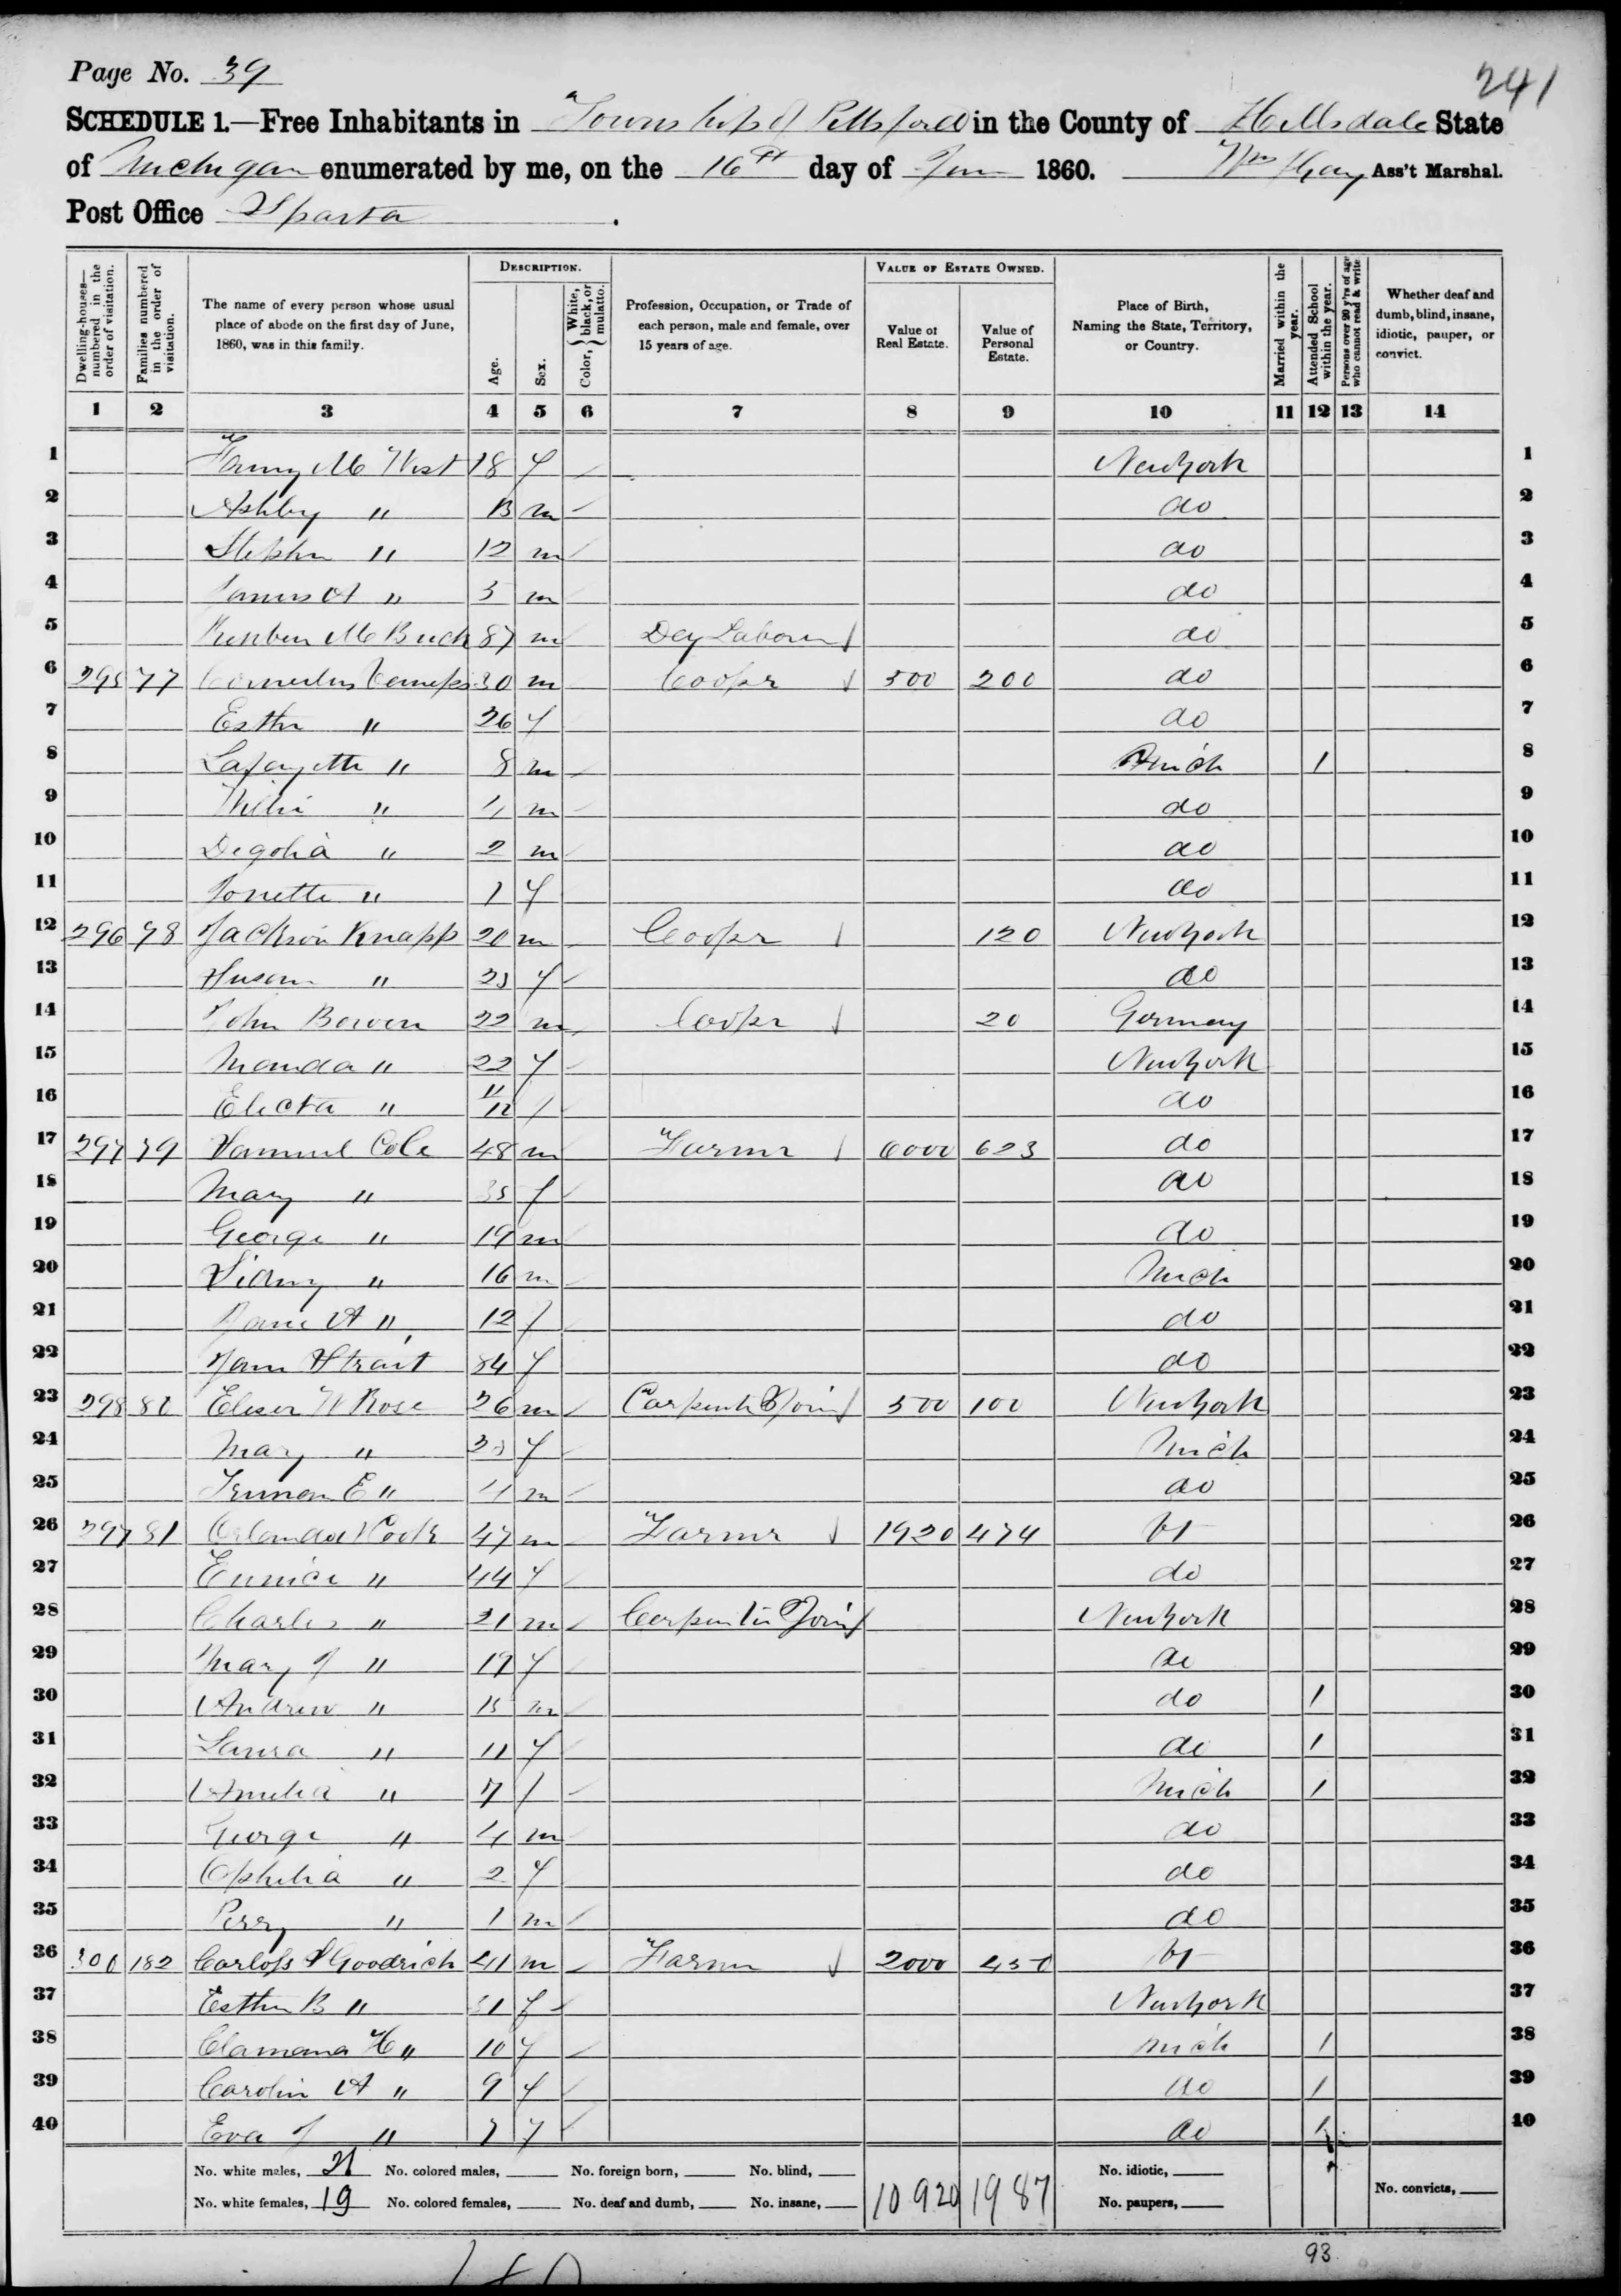 Page No. 39
241
SCHEDULE 1.—Free Inhabitants in Township of Pittsford in the County of Hillsdale State
of Michigan enumerated by me, on the 16th day of June 1860. Wm Kay Ass't Marshal.
Post Office Sparta.
Dwelling-houses—numbered in the order of visitation.
Families numbered in the order of visitation.
The name of every person whose usual place of abode on the first day of June, 1860, was in this family.
DESCRIPTION.
Age.
Sex.
Color, { White, black, or mulatto.
Profession, Occupation, or Trade of each person, male and female, over 15 years of age.
VALUE OF ESTATE OWNED.
Value of Real Estate.
Value of Personal Estate.
Place of Birth, Naming the State, Territory, or Country.
Married within the year.
Attended School within the year.
Persons over 20 y'rs of age who cannot read & write
Whether deaf and dumb, blind, insane, idiotic, pauper, or convict.
1 2 3 4 5 6 7 8 9 10 11 12 13 14
1 Fanny M West 18 f New York 1
2 Ashley " 13 m do 2
3 Stephn " 12 m do 3
4 James A " 5 m do 4
5 M Buck m Day Laborer do 5
6 295 77 Cornelius 30 m Cooper 500 200 do 6
7 Esther " 26 f do 7
8 Lafayette " 8 m Mich 1 8
9 Willie " 4 m do 9
10 Degolia " 2 m do 10
11 " 1 f do 11
12 296 78 Jackson Knapp 20 m Cooper 120 New York 12
13 Susan " 23 f do 13
14 John Bowen 22 m Cooper 20 Germany 14
15 Manda " 22 f New York 15
16 Electa " 11/12 f do 16
17 297 79 Samuel Cole 48 m Farmer 6000 623 do 17
18 Mary " 35 f do 18
19 George " 19 m do 19
20 Sidney " 16 m Mich 20
21 Jane A " 12 f do 21
22 Jane Strait 84 f do 22
23 298 80 W Rose 26 m Carpenter & Join 500 100 New York 23
24 Mary " 23 f Mich 24
25 Truman E " 4 m do 25
26 297 81 Cook 47 m Farmer 1920 474 Vt 26
27 Eunice " 44 f do 27
28 Charles " 21 m Carpenter Join New York 28
29 Mary J " 19 f do 29
30 Andrew " 15 m do 1 30
31 Laura " 11 f do 1 31
32 Amelia " 7 f Mich 1 32
33 George " 4 m do 33
34 Ophelia " 2 f do 34
35 Perry " 1 m do 35
36 300 182 Carloss S Goodrich 41 m Farmer 2000 450 Vt 36
37 Esther B " 31 f New York 37
38 Clamana H " 10 f Mich 1 38
39 Carolin A " 9 f do 1 39
40 Eva J " 7 f do 1 40
No. white males, 21 No. colored males, No. foreign born, No. blind, No. idiotic,
No. white females, 19 No. colored females, No. deaf and dumb, No. insane, 10920 1987 No. paupers, No. convicts,
93